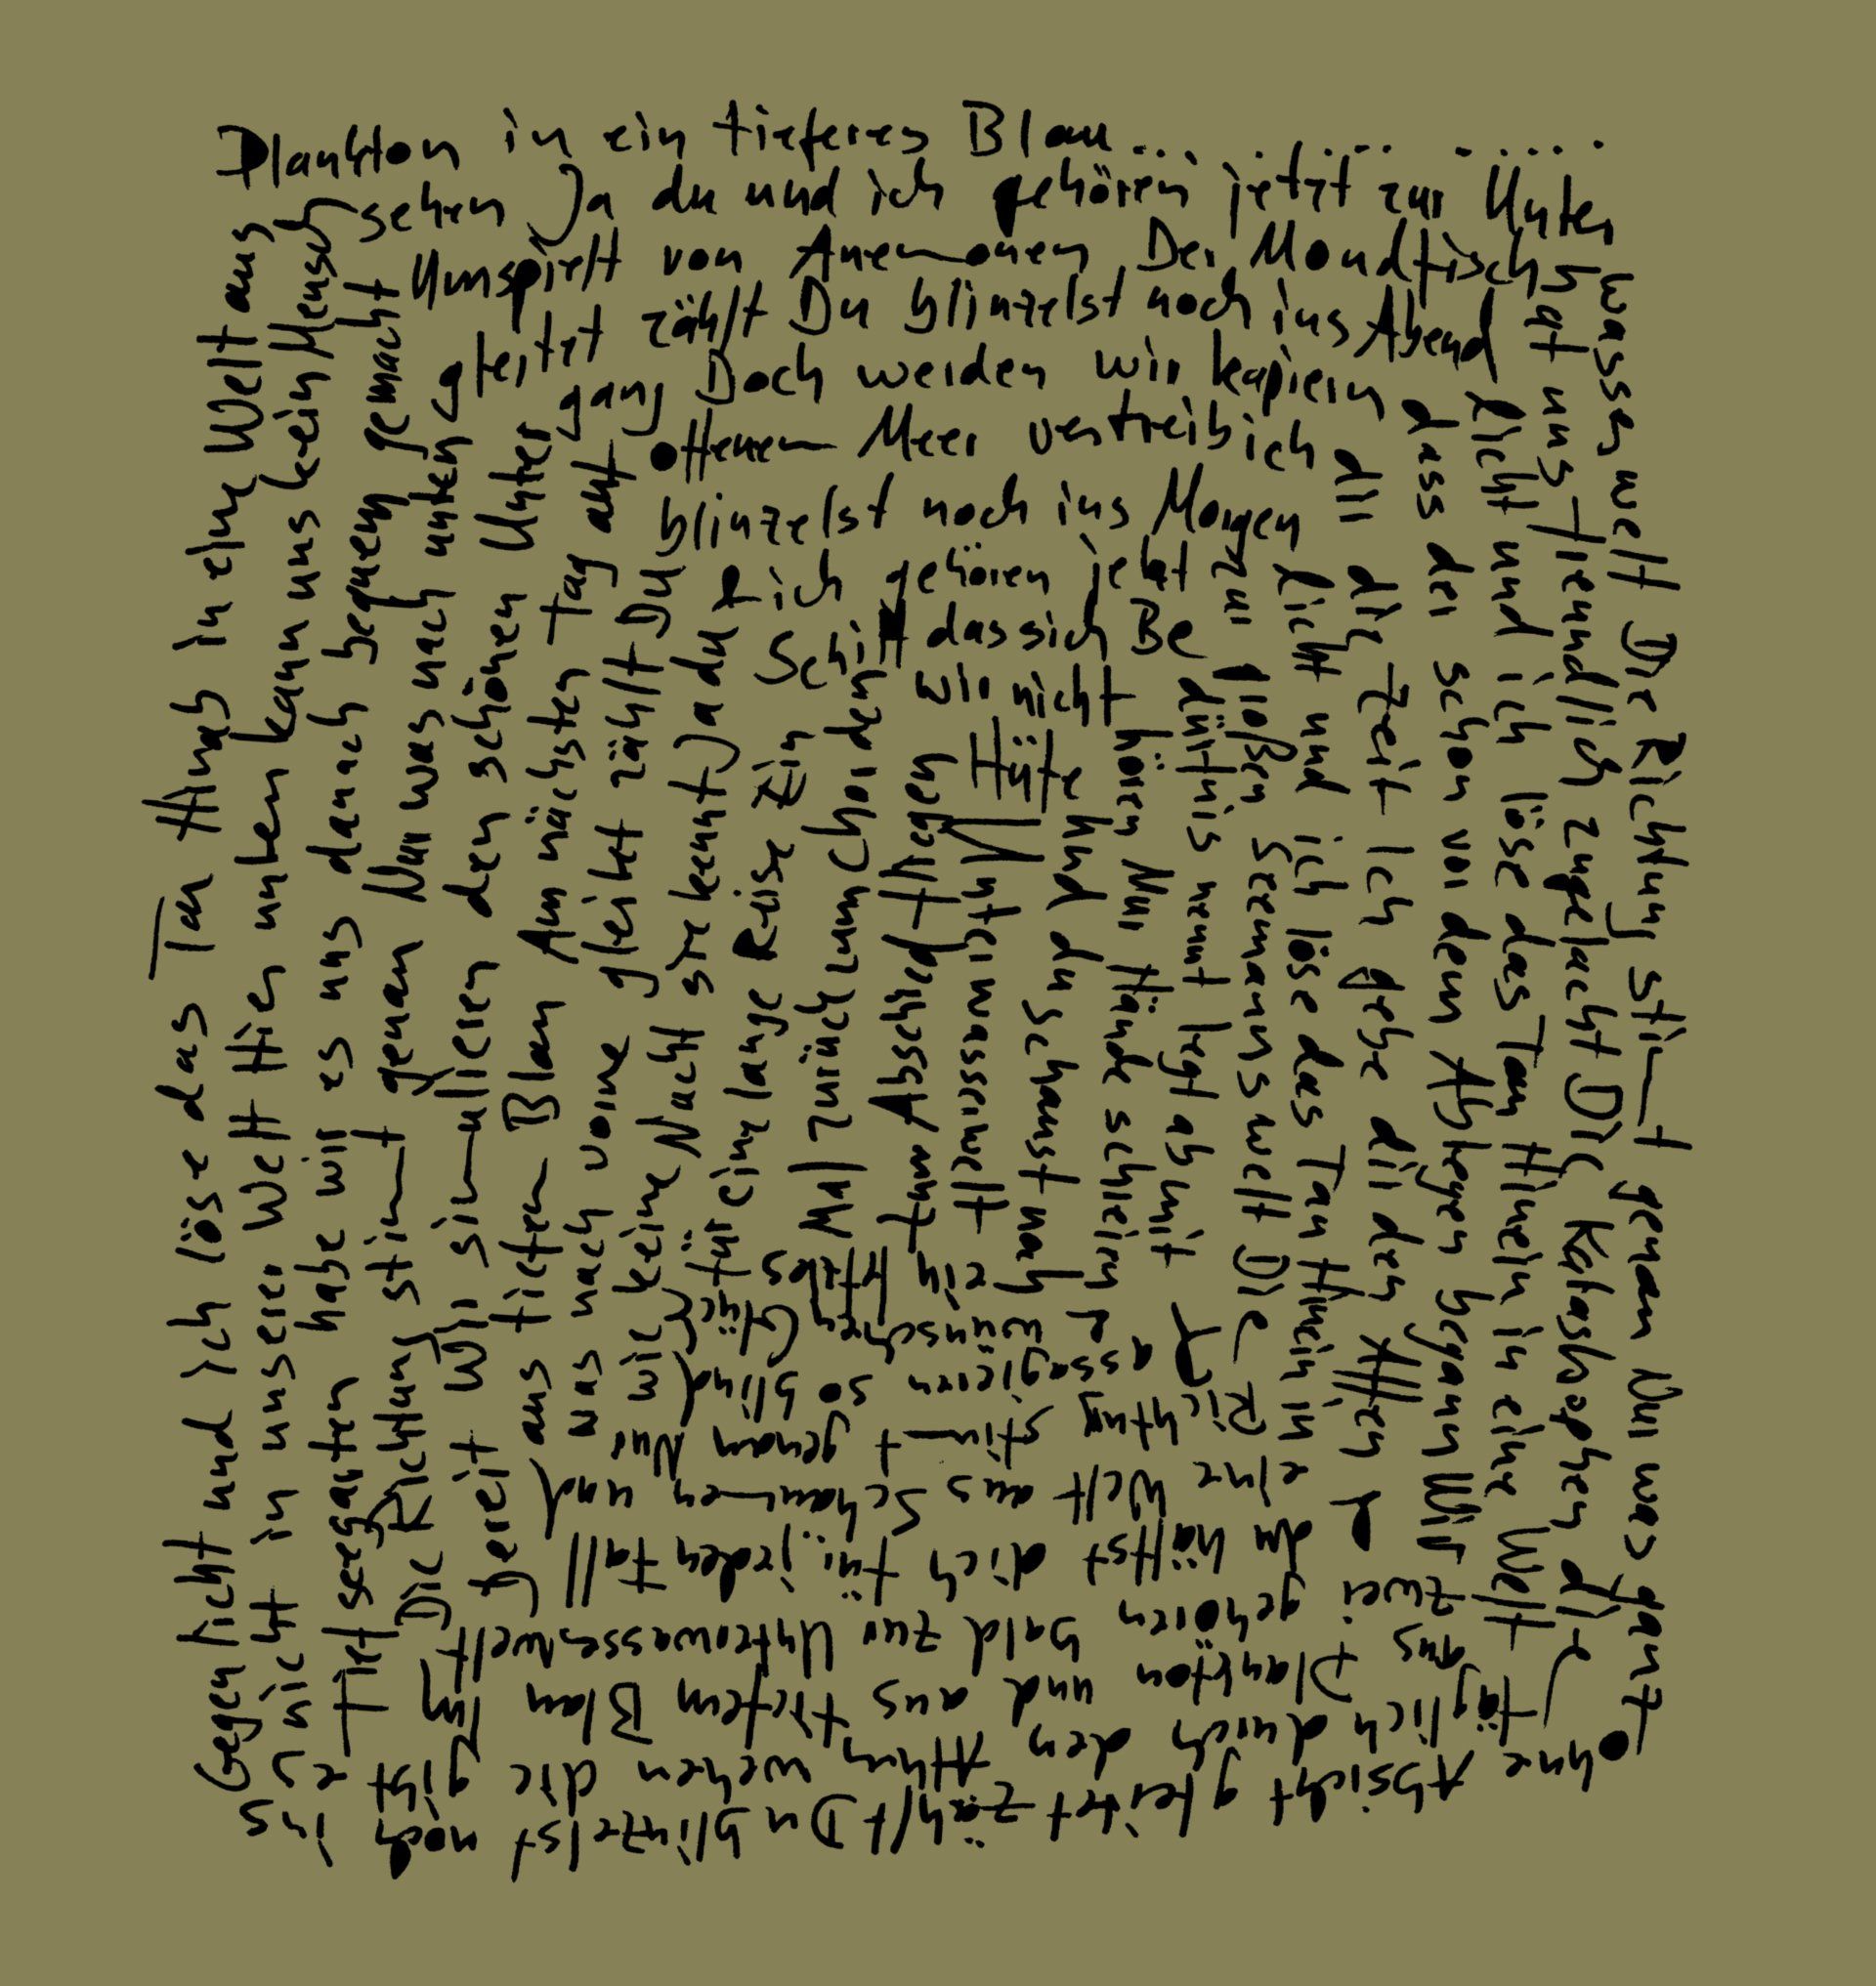 Zum Abschied fliegen
Hüte
und du schaust noch
ein letztes
Mal zurück zum Chor den
wir nicht
hören Nur Hände scheinen
zu wünschen Glück
für eine lange Reise Ein
Schiff das sich Be
dürfnis nennt legt ab mit
Passagieren so blind
wie keine Nacht sie kennt Ja du &
ich gehören jetzt
zur großen Seemannswelt Die
Richtung stimmt genau Nur
was nach vorne gleitet zählt Du
blinzelst noch ins Morgen
licht und ich löse das Tau Hinein in
eine Welt aus Schaum und
aus tiefem Blau Am nächsten Tag auf
offenem Meer vertreib ich
dir die Zeit Ich gebe dir den Affen &
du hältst dich für jeden Fall
bereit Wir simulieren den schönen Unter
gang Doch werden wir kapiern
dass der schon vor dem Ablegen begann Wir
zwei gehören bald zur Unterwasserwelt
Die Richtung stimmt genau Nur was nach unten
gleitet zählt Du blinzelst noch ins Abend
licht und ich löse das Tau Hinein in eine Welt
aus Plankton und aus tiefem Blau Im
Tiefseegarten habe wir es uns danach bequem gemacht
Umspielt von Anemonen Der Mondfisch
hat uns freundlich zugelacht Die Katastrophen die
täglich durch den Äthern wehen die gibt es
nicht in unserer Welt Hier unten kann uns kein Mensch
sehen Ja du und ich gehören jetzt zur Unter
wasserwelt Die Richtung stimmt genau Nur was ganz
ohne Absicht gleitet zählt Du blinzelst noch ins
Gegenlicht und ich löse das Tau Hinab in eine Welt aus
Plankton in ein tieferes Blau...